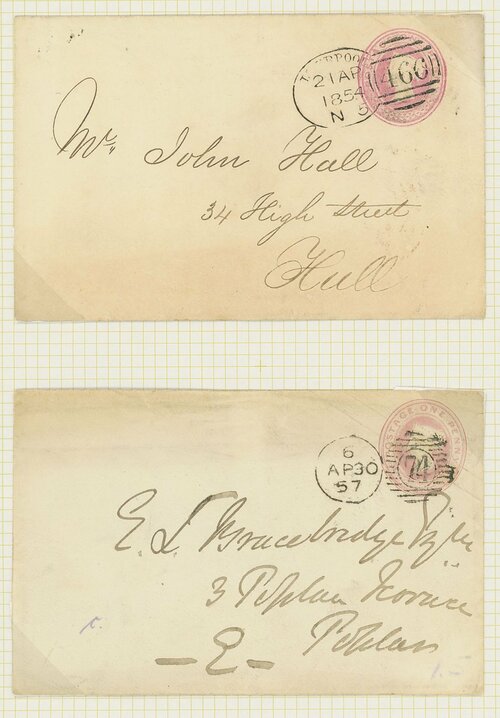 LIVERPOOL
21 AP
1854
N 5
466
Mr. John Hall
34 High Street
Hull
POSTAGE ONE PENNY
6
AP 30
57
74
E. L. Bracebridge Esqre
3 Poplar Terrace
Poplar
— E —